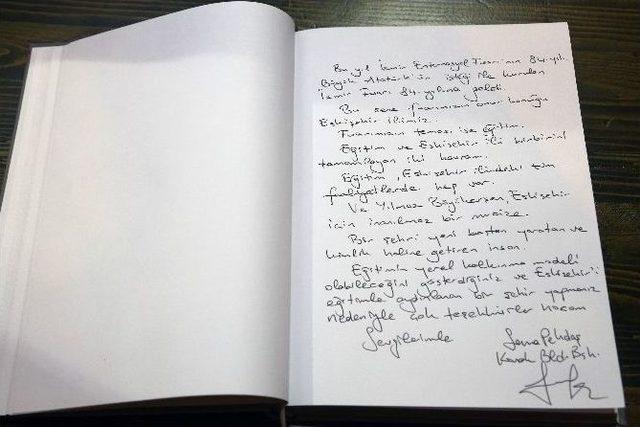 Bu yıl İzmir Enternasyonel Fuarı'nın 84. yılı.
Büyük Atatürk'ün isteği ile kurulan
İzmir Fuarı 84 yaşına geldi.
Bu sene fuarımızın onur konuğu
Eskişehir ilimiz.
Fuarımızın teması ise eğitim.
Eğitim ve Eskişehir ili birbirini
tamamlayan iki kavram.
Eğitim, Eskişehir ilindeki tüm
faaliyetlerde hep var.
Ve Yılmaz Büyükerşen, Eskişehir
için inanılmaz bir mucize.
Bir şehri yeni baştan yaratan ve
kimlik haline getiren insan.
Eğitimin yerel kalkınma modeli
olabileceğini gösterdiğiniz ve Eskişehir'i
eğitimle aydınlanan bir şehir yapmanız
nedeniyle çok teşekkürler hocam
Sevgilerimle
Sema Pekdaş
Konak Bld. Bşk.